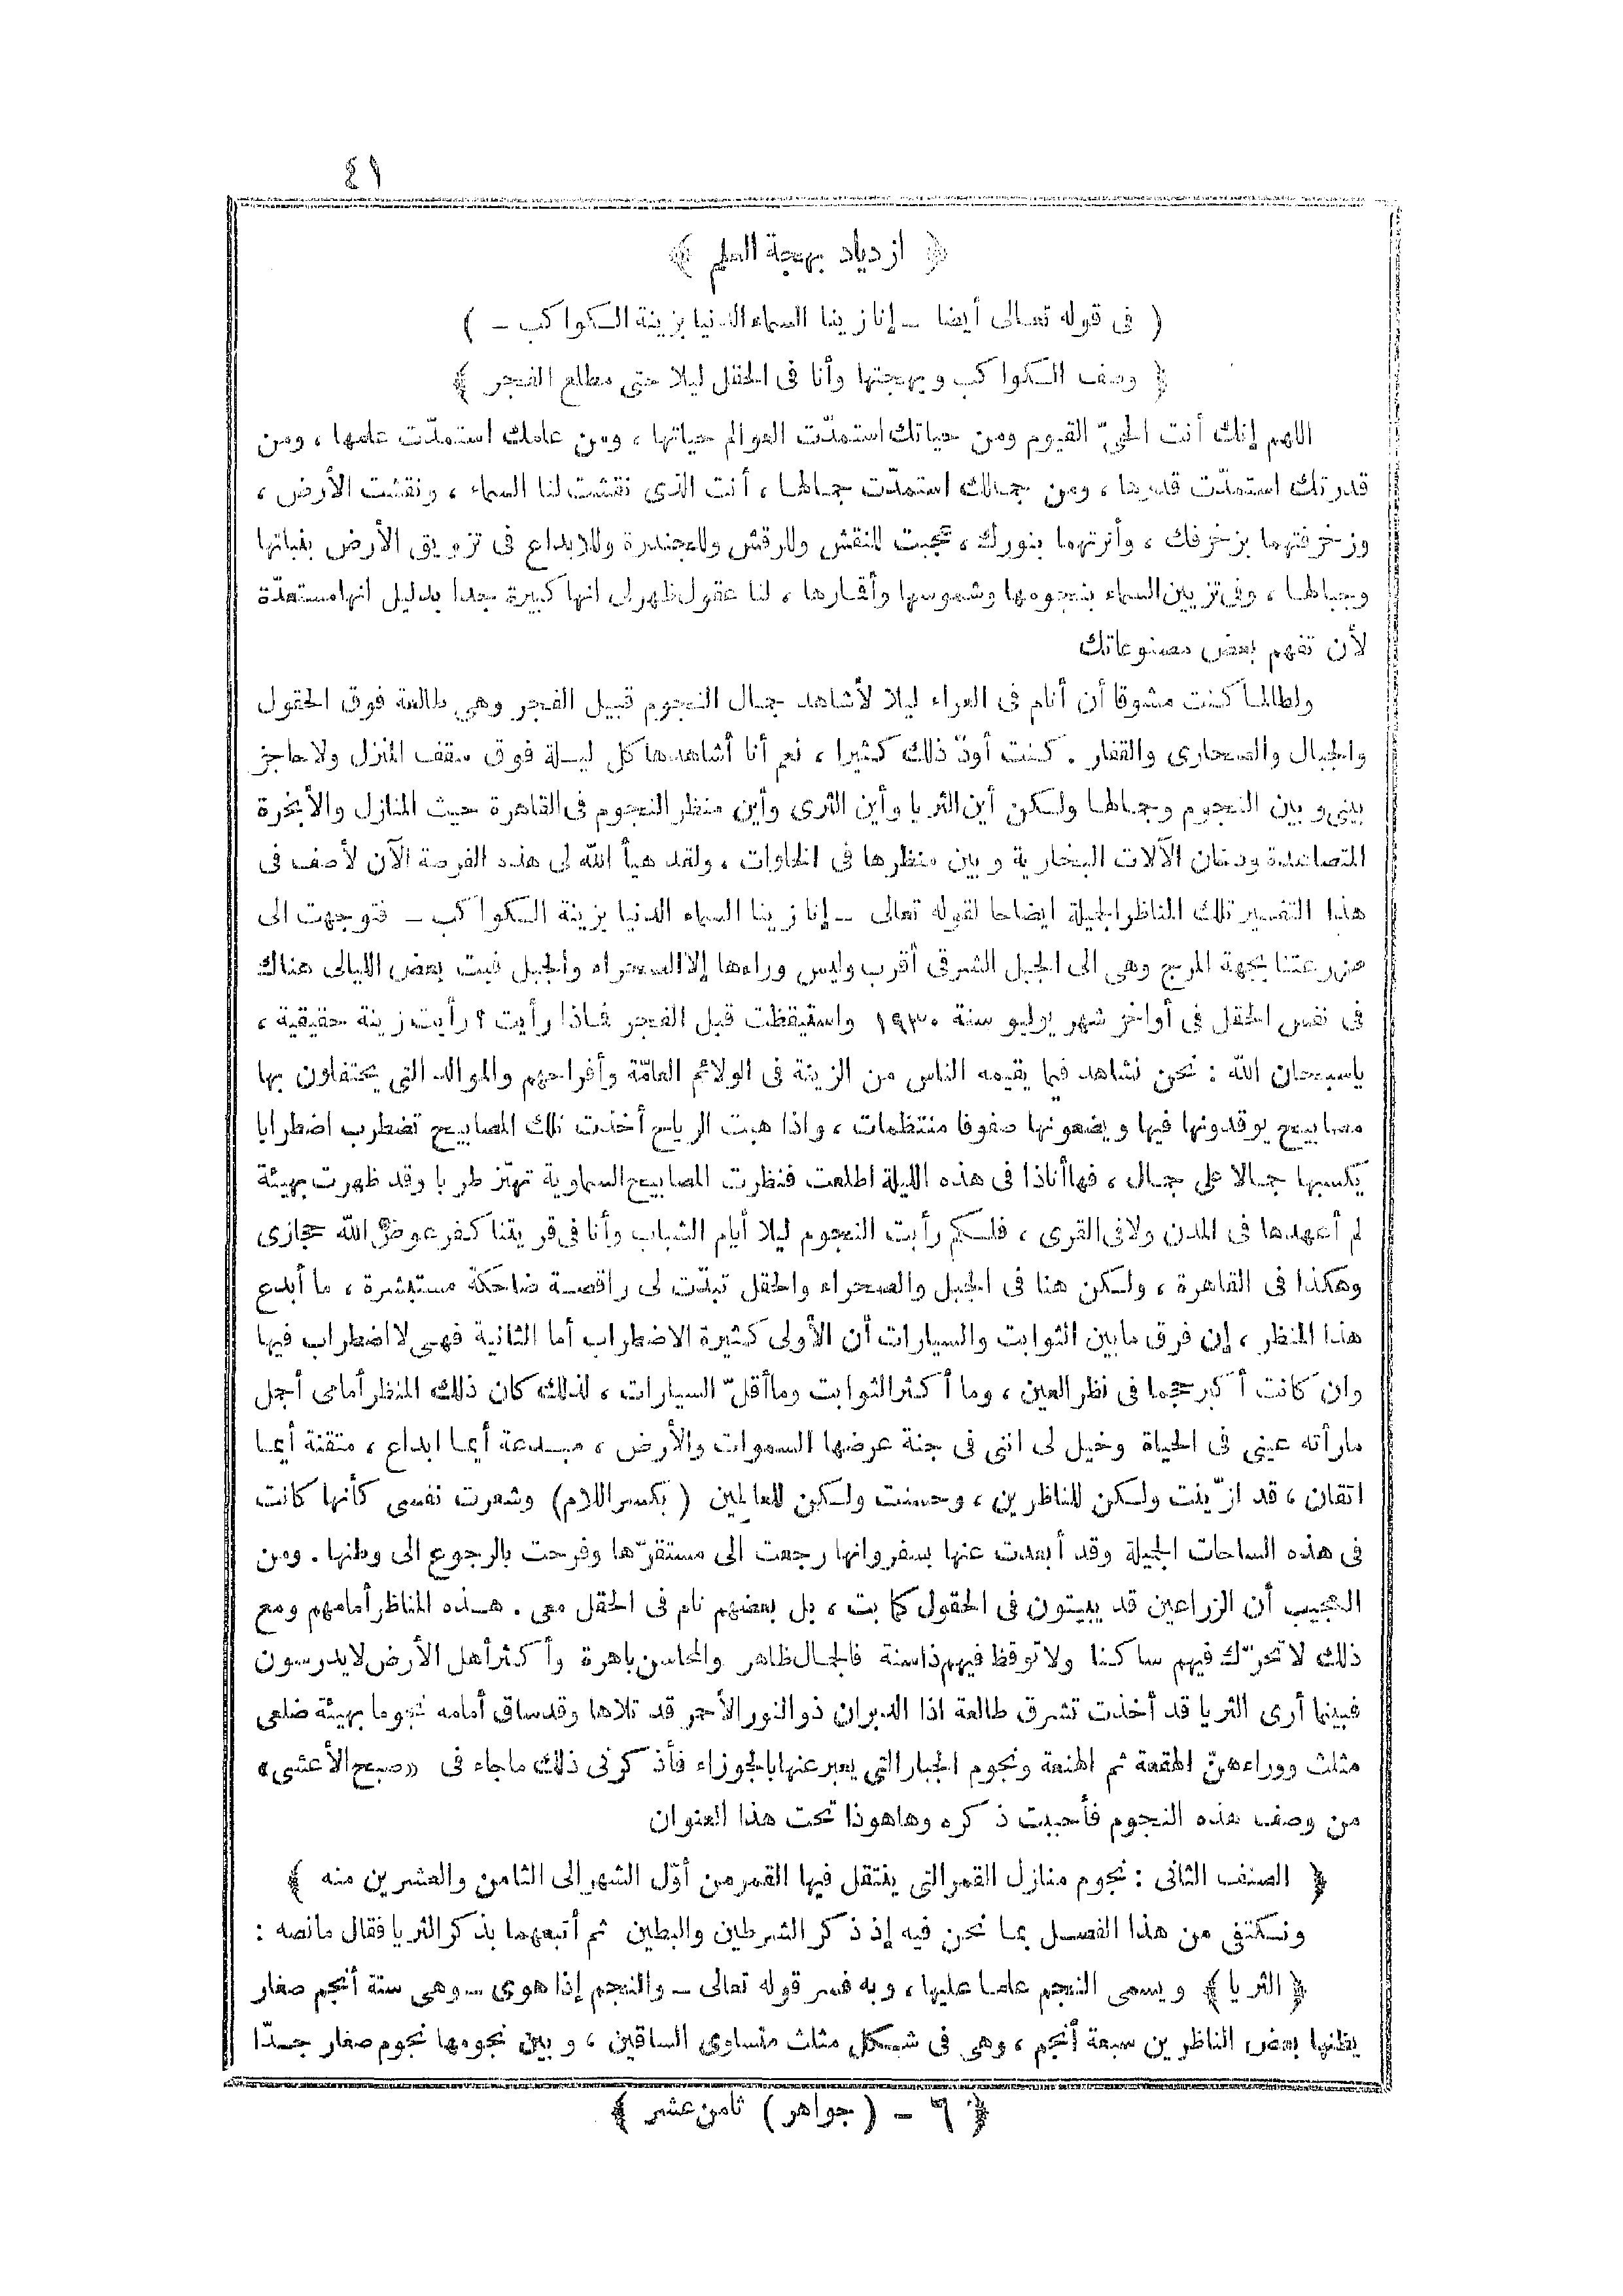 ٤١
﴿ ازدياد بهجة العلم ﴾
( فى قوله تعالى أيضا ــ إنا زينا السماء الدنيا بزينة الكواكب ــ )
﴿ وصف الكواكب وبهجتها وأنا فى الحقل ليلا حتى مطلع الفجر ﴾
اللهم إنك أنت الحىّ القيوم ومن حياتك استمدّت العوالم حياتها ، ومن علمك استمدّت علمها ، ومن
قدرتك استمدّت قدرها ، ومن جمالك استمدّت جمالها ، أنت الذى نقشت لنا السماء ، ونقشت الأرض ،
وزخرفتهما بزخرفك ، وأنرتهما بنورك ، عجبت للنقش وللرقش وللهندرة وللابداع فى تزويق الأرض بنباتها
وجبالها ، وفى تزيين السماء بنجومها وشموسها وأقمارها ، لنا عقول ظهر لى انها كبيرة جدا بدليل انها مستعدّة
لأن تفهم بعض مصنوعاتك
ولطالما كنت مشوقا أن أنام فى العراء ليلا لأشاهد جمال النجوم قبيل الفجر وهى طالعة فوق الحقول
والجبال والصحارى والقفار . كنت أودّ ذلك كثيرا ، نعم أنا أشاهدها كل ليلة فوق سقف المنزل ولا حاجز
بينى وبين النجوم وجمالها ولكن أين الثريا وأين الثرى وأين منظر النجوم فى القاهرة حيث المنازل والأبخرة
المتصاعدة ودخان الآلات البخارية وبين منظرها فى الخلوات ، ولقد هيأ الله لى هذه الفرصة الآن لأصف فى
هذا التفسير تلك المناظر الجميلة ايضاحا لقوله تعالى ــ إنا زينا السماء الدنيا بزينة الكواكب ــ فتوجهت الى
مزرعتنا بجهة المرج وهى الى الجبل الشرقى أقرب وليس وراءها إلا الصحراء والجبل فبت بعض الليالى هناك
فى نفس الحقل فى أواخر شهر يوليو سنة ١٩٣٠ واستيقظت قبل الفجر فماذا رأيت ؟ رأيت زينة حقيقية ،
ياسبحان الله : نحن نشاهد فيما يقيمه الناس من الزينة فى الولائم العامّة وأفراحهم والموالد التى يحتفلون بها
مصابيح يوقدونها فيها ويضعونها صفوفا منتظمات ، واذا هبت الرياح أخذت تلك المصابيح تضطرب اضطرابا
يكسبها جمالا على جمال ، فها أناذا فى هذه الليلة اطلعت فنظرت المصابيح السماوية تهتز طربا وقد ظهرت بهيئة
لم أعهدها فى المدن ولا فى القرى ، فلكم رأيت النجوم ليلا أيام الشباب وأنا فى قريتنا كفر عوض الله حجازى
وهكذا فى القاهرة ، ولكن هنا فى الجبل والصحراء والحقل تبدّت لى راقصة ضاحكة مستبشرة ، ما أبدع
هذا المنظر ، إن فرق مابين الثوابت والسيارات أن الأولى كثيرة الاضطراب أما الثانية فهى لا اضطراب فيها
وان كانت أكبر حجما فى نظر العين ، وما أكثر الثوابت وما أقلّ السيارات ، لذلك كان ذلك المنظر أمامى أجمل
مارأته عينى فى الحياة وخيل لى اننى فى جنة عرضها السموات والأرض ، مبدعة أيما ابداع ، متقنة أيما
اتقان ، قد ازّينت ولكن للناظرين ، وحسنت ولكن للعالمين ( بكسر اللام ) وشعرت نفسى كأنها كانت
فى هذه الساحات الجميلة وقد أبعدت عنها بسفر وانها رجعت الى مستقرّها وفرحت بالرجوع الى وطنها . ومن
العجيب أن الزراعين قد يبيتون فى الحقول كما بت ، بل بعضهم نام فى الحقل معى . هذه المناظر أمامهم ومع
ذلك لا تحرّك فيهم ساكنا ولا توقظ فيهم ذاسنة فالجمال ظاهر والمحاسن باهرة وأكثر أهل الأرض لايدرسون
فبينما أرى الثريا قد أخذت تشرق طالعة اذا الدبران ذو النور الأحمر قد تلاها وقد ساق أمامه نجوما بهيئة ضلعى
مثلث ووراءهنّ الهقعة ثم الهنعة ونجوم الجبار التى يعبر عنها بالجوزاء فأذكرنى ذلك ماجاء فى «صبح الأعشى»
من وصف هذه النجوم فأحببت ذكره وهاهوذا تحت هذا العنوان
﴿ الصنف الثانى : نجوم منازل القمر التى ينتقل فيها القمر من أوّل الشهر الى الثامن والعشرين منه ﴾
ونكتفى من هذا الفصل بما نحن فيه إذ ذكر الشرطين والبطين ثم أتبعهما بذكر الثريا فقال مانصه :
﴿ الثريا ﴾ ويسمى النجم علما عليها ، وبه فسر قوله تعالى ــ والنجم إذا هوى ــ وهى ستة أنجم صغار
يظنها بعض الناظرين سبعة أنجم ، وهى فى شكل مثلث متساوى الساقين ، وبين نجومها نجوم صغار جدّا
﴿ ٦ ــ ( جواهر ) ثامن عشر ﴾